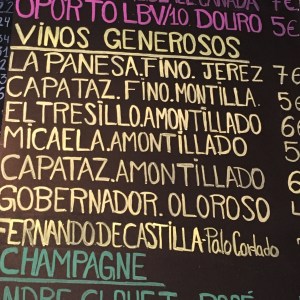 OPORTO LBV/10. DOURO 5€
VINOS GENEROSOS
LA PANESA.FINO. JEREZ 7€
CAPATAZ. FINO.MONTILLA.
EL TRESILLO.AMONTILLADO 6
MICAELA.AMONTILLADO 5
CAPATAZ.AMONTILLADO
GOBERNADOR. OLOROSO
FERNANDO DE CASTILLA-Palo Cortado
CHAMPAGNE